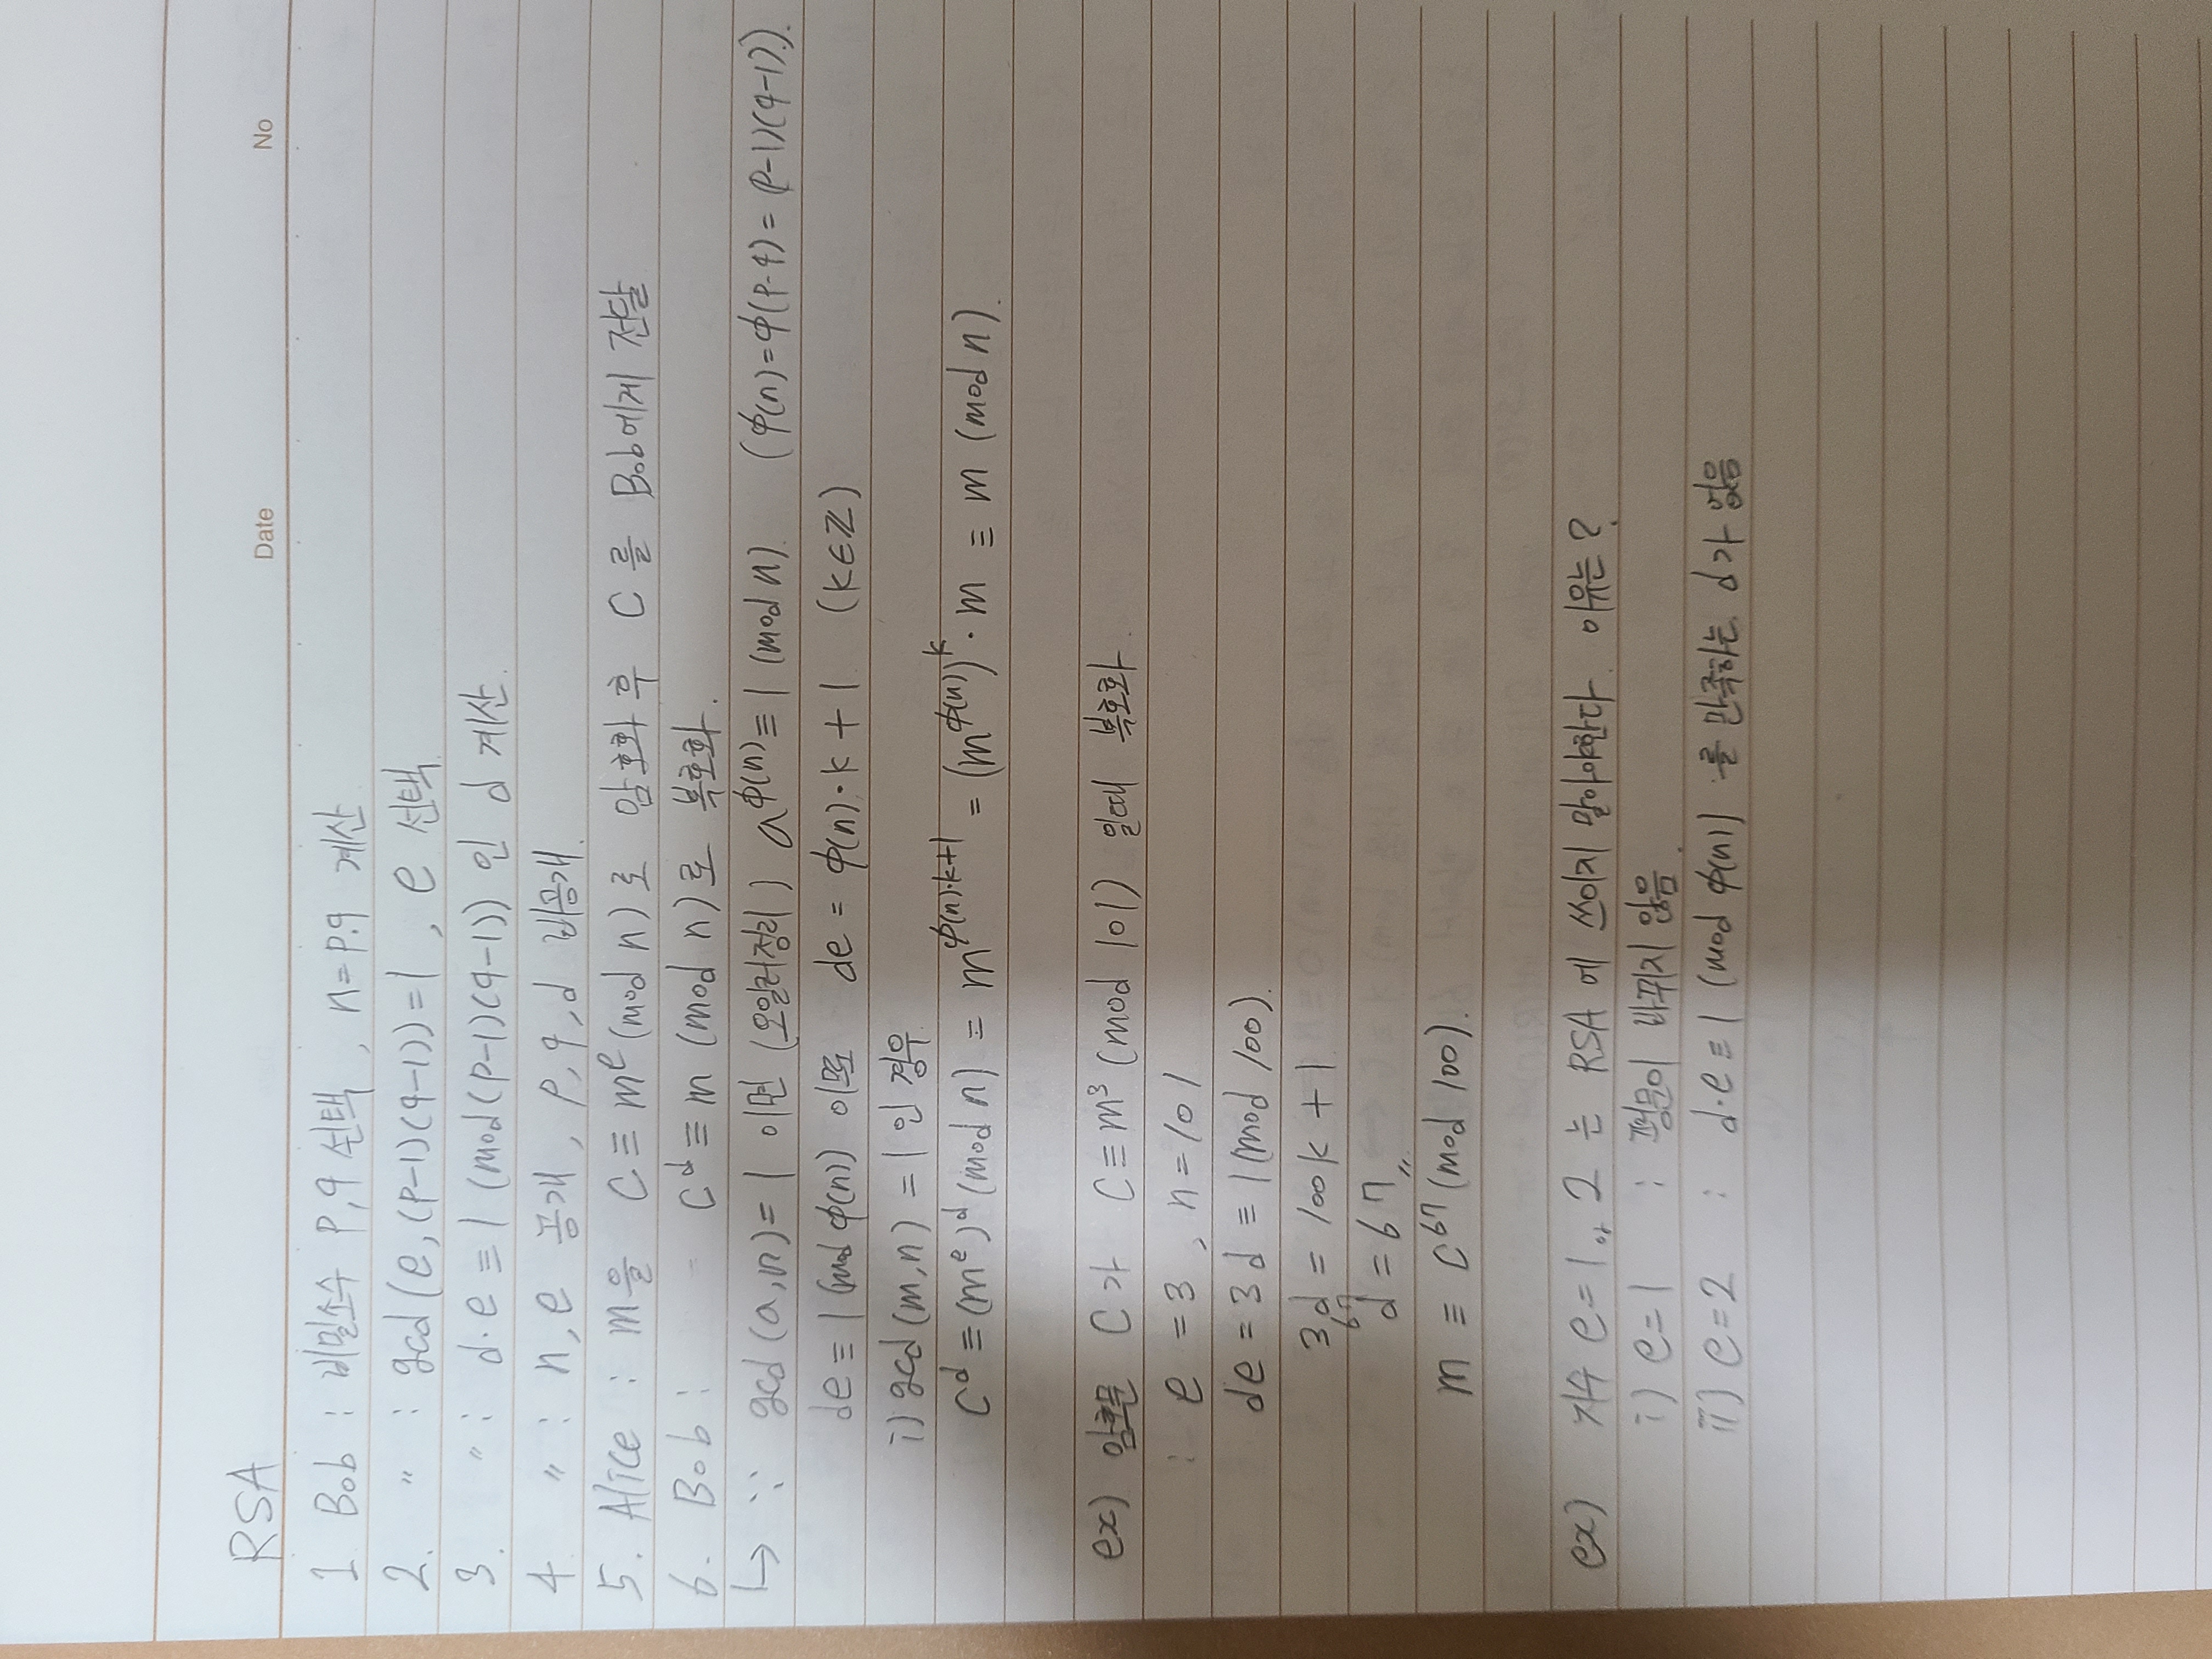 RSA
Date No
1 Bob : 비밀소수 P,q 선택 , n=p.q 계산
2. 〃 : gcd(e,(p-1)(q-1))=1 , e 선택.
3. 〃 : d·e ≡ 1 (mod(p-1)(q-1)) 인 d 계산.
4 〃 : n,e 공개 , p,q,d 비공개.
5. Alice : m을 C≡m^e (mod n)로 암호화 후 C를 Bob에게 전달
6. Bob : C^d ≡ m (mod n)로 복호화.
↳ ∵ gcd(a,n)=1 이면 (오일러정리) a^ϕ(n) ≡ 1 (mod n). (ϕ(n)=ϕ(p·q)=(p-1)(q-1).).
de ≡ 1 (mod ϕ(n)) 이므로 de = ϕ(n)·k+1 (k∈ℤ)
i) gcd(m,n) = 1 인 경우.
C^d ≡ (m^e)^d (mod n) = m^ϕ(n)·k+1 = (m^ϕ(n))^k · m ≡ m (mod n).
ex) 암호문 C가 C≡m³ (mod 101) 일때 복호화.
: e = 3 , n=101
de = 3d ≡ 1 (mod 100).
3d = 100k + 1
67
d = 67〃
m ≡ C^67 (mod 100).
ex) 지수 e=1, 2 는 RSA에 쓰이지 말아야한다. 이유는?
i) e=1 : 평문이 바뀌지 않음.
ii) e=2 : d·e≡1 (mod ϕ(n)) 를 만족하는 d가 없음